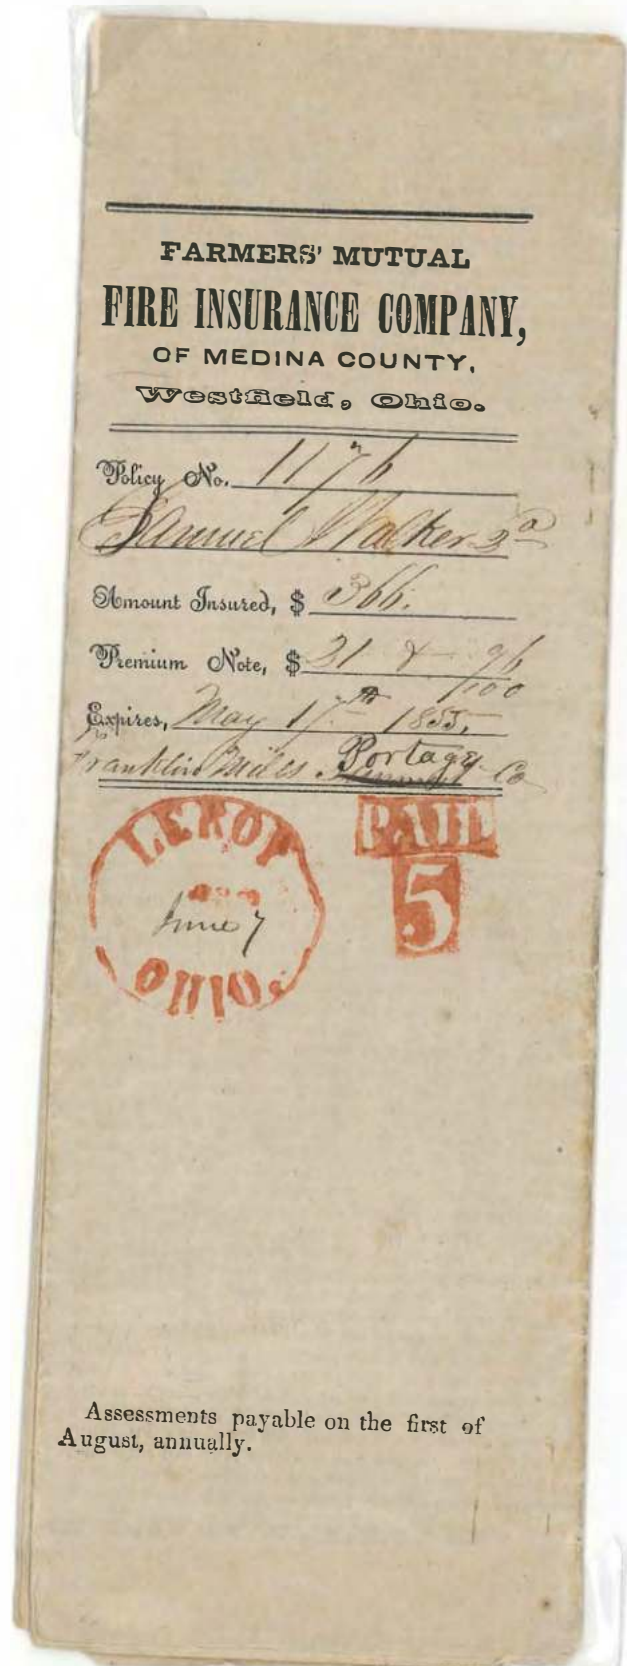 FARMERS' MUTUAL
FIRE INSURANCE COMPANY,
OF MEDINA COUNTY,
Westfield, Ohio.
Policy No. 1176
Samuel Walker 2d
Amount Insured, $ 366.
Premium Note, $ 21 & 96/100
Expires, May 17th 1855,
Franklin Mills Portage Co
LEROY
June 7
OHIO.
PAID
5
Assessments payable on the first of
August, annually.